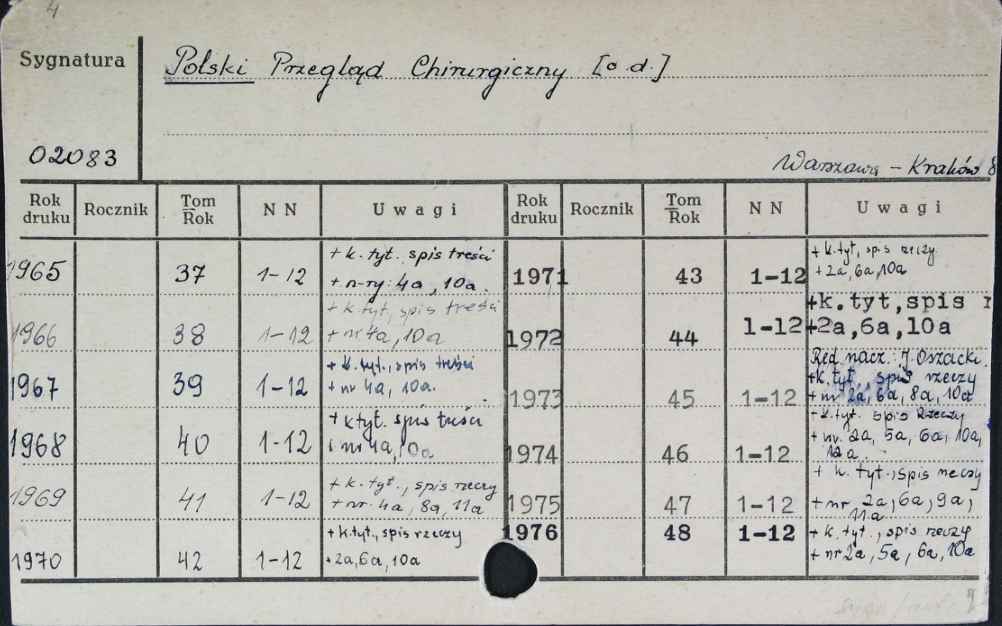 4
Sygnatura
Polski Przegląd Chirurgiczny [o d.]
02083
Warszawa - Kraków 8
Rok druku Rocznik Tom Rok N N Uwagi Rok druku Rocznik Tom Rok N N Uwagi
1965 37 1-12 + k. tyt. spis treści
+ n-ry: 4a, 10a.
1966 38 1-12 + k. tyt, spis treści
+ nr 4a, 10a
1967 39 1-12 + k. tyt., spis treści
+ nr 4a, 10a.
1968 40 1-12 + k tyt. spis treści
i nr 4a, 10a
1969 41 1-12 + k. tyt., spis rzeczy
+ nr. 4a, 8a, 11a
1970 42 1-12 + k.tyt., spis rzeczy
+ 2a, 6a, 10a
1971 43 1-12 + k.tyt, spis rzeczy
+ 2a, 6a, 10a
1972 44 1-12 +k.tyt,spis r
+2a,6a,10a
Red. nacz.: J. Oszacki.
1973 45 1-12 +k. tyt, spis rzeczy
+ nr 2a, 6a, 8a, 10a
1974 46 1-12 + k. tyt. spis rzeczy
+ nr. 2a, 5a, 6a, 10a,
12a.
1975 47 1-12 + k. tyt., spis rzeczy
+ nr. 2a, 6a, 9a,
11a
1976 48 1-12 + k. tyt., spis rzeczy
+ nr 2a, 5a, 6a, 10a